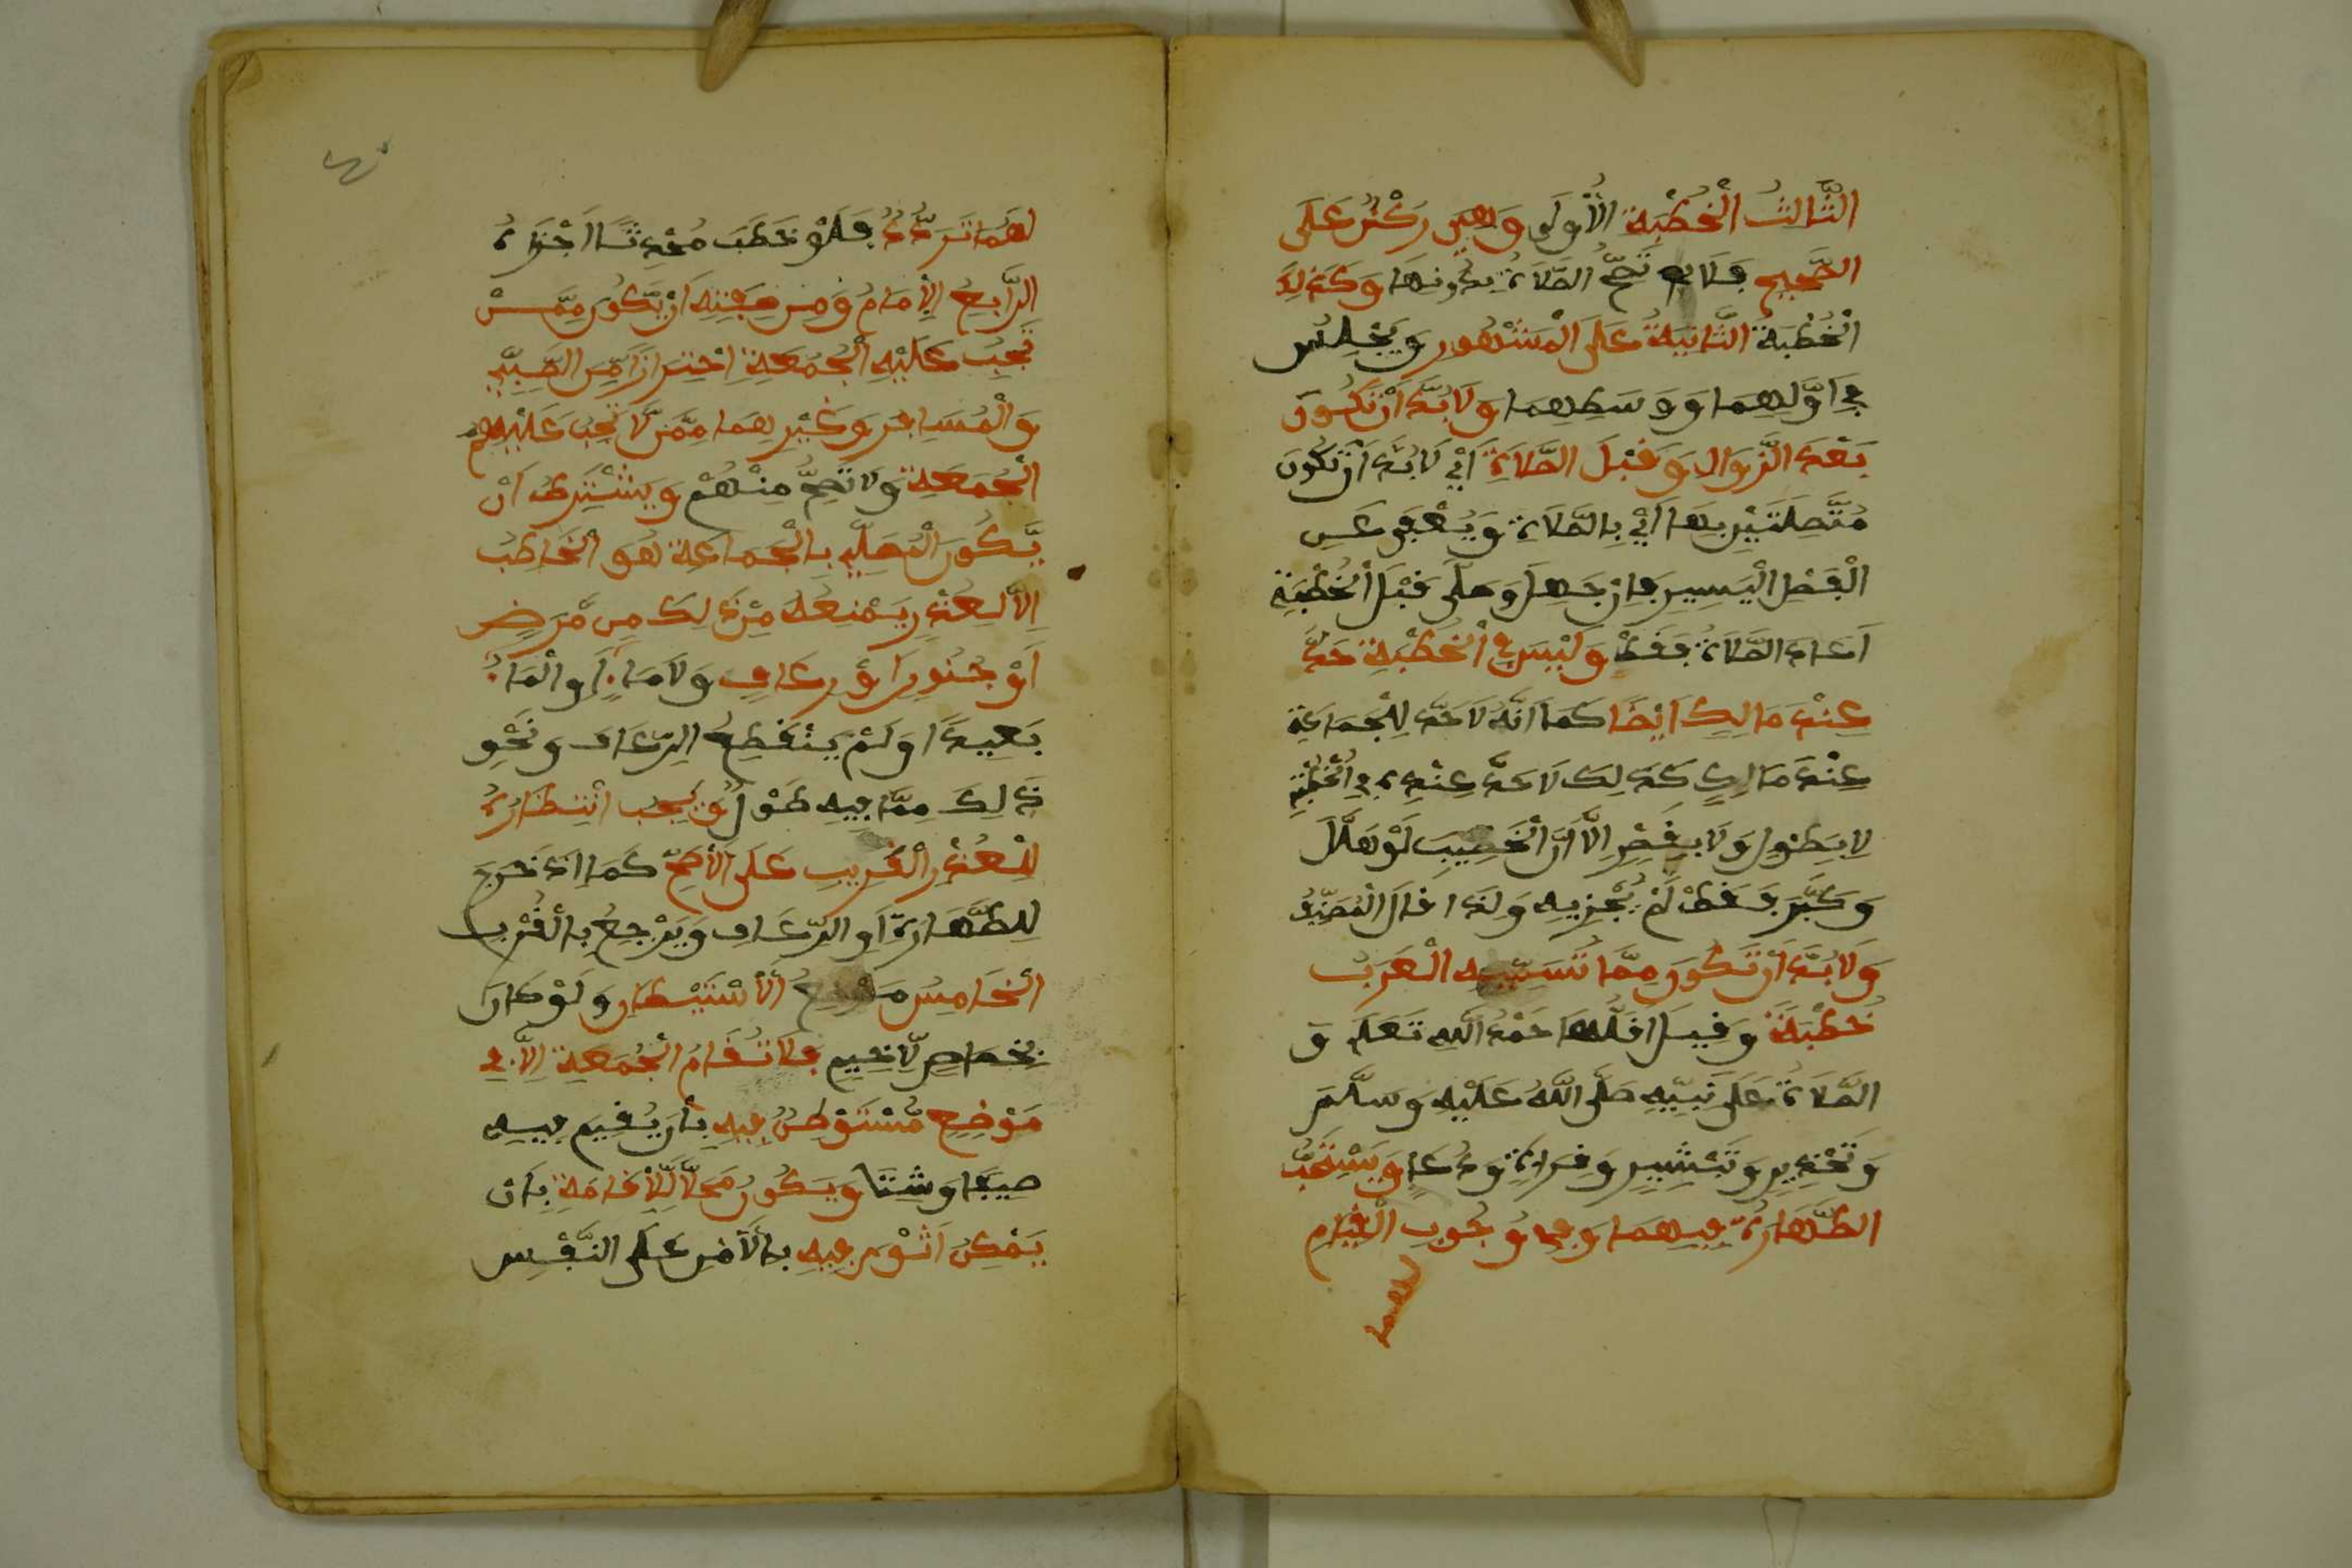 الثَّالِثُ الْخُطْبَةُ الْأُولَى وَهِيَ رُكْنٌ عَلَى
الصَّحِيحِ فَلَا تَصِحُّ الصَّلَاةُ بِدُونِهَا وَكَذَلِكَ
الْخُطْبَةُ الثَّانِيَةُ عَلَى الْمَشْهُورِ وَيَجْلِسُ
فِي أَوَّلِهِمَا وَوَسَطِهِمَا وَلَا بُدَّ أَنْ تَكُونَ
بَعْدَ الزَّوَالِ وَقَبْلَ الصَّلَاةِ أَيْ لَا بُدَّ أَنْ تَكُونَ
مُتَّصِلَتَيْنِ بِهَا أَيْ بِالصَّلَاةِ وَيُعْفَى عَنِ
الْفَصْلِ الْيَسِيرِ فَإِنْ جَهِلَ وَصَلَّى قَبْلَ الْخُطْبَةِ
أَعَادَ الصَّلَاةَ فَقَطْ وَلَيْسَ فِي الْخُطْبَةِ حَدٌّ
عِنْدَ مَالِكٍ أَيْضًا كَمَا أَنَّهُ لَا حَدَّ لِلْجَمَاعَةِ
عِنْدَ مَالِكٍ كَذَلِكَ لَا حَدَّ عِنْدَهُ فِي الْخُطْبَةِ
لَا بِطُولٍ وَلَا بِقِصَرٍ إِلَّا أَنَّ الْخَطِيبَ لَوْ هَلَّلَ
وَكَبَّرَ فَقَطْ لَمْ يُجْزِيهِ وَلِذَا قَالَ الْمُصَنِّفُ
وَلَا بُدَّ أَنْ تَكُونَ مِمَّا تُسَمِّيهِ الْعَرَبُ
خُطْبَةً وَقِيلَ أَقَلُّهَا حَمْدُ اللَّهِ تَعَلَى وَ
الصَّلَاةُ عَلَى نَبِيِّهِ صَلَّى اللَّهُ عَلَيْهِ وَسَلَّمَ
وَتَحْذِيرٍ وَتَبْشِيرٍ وَقِرَاءَةٍ وَدُعَاءٍ وَيُسْتَحَبُّ
الطَّهَارَةُ فِيهِمَا وَفِي وُجُوبِ الْقِيَامِ
لهما
لَهُمَا تَرَدُّدٌ فَلَوْ خَطَبَ مُحْدِثًا أَجْزَاهُ
الرَّابِعُ الْإِمَامُ وَمِنْ صِفَتِهِ أَنْ يَكُونَ مِمَّنْ
تَجِبُ عَلَيْهِ الْجُمُعَةِ اِحْتِرَازًا مِّنَ الصَّبِيِّ
وَالْمُسَافِرِ وَغَيْرِهِمَا مِمَّنْ لَّا تَجِبُ عَلَيْهِمُ
الْجُمُعَةِ وَلَا تَصِحُّ مِنْهُمْ وَيُشْتَرَطُ أَنْ
يَّكُونَ الْمُصَلِّي بِالْجَمَاعَةِ هُوَ الْخَاطِبُ
إِلَّا لِعُذْرٍ يَمْنَعُهُ مِنْ ذَلِكَ مِن مَّرَضٍ
أَوْ جُنُونٍ أَوْ رُعَافٍ وَلَا مَاءَ أَوِ الْمَاءُ
بَعِيدًا وَلَمْ يَنْقَطِعْ الرُّعَافُ وَنَحْوِ
ذَلِكَ مِمَّا فِيهِ طُولٌ وَيَجِبُ انْتِظَارُهُ
لِلْعُذْرِ الْقَرِيبِ عَلَى الْأَصَحِّ كَمَا إِذَا خَرَجَ
لِلطَّهَارَةِ أَوِ الرُّعَافِ وَيَرْجِعُ بِالْقُرْبِ
الْخَامِسُ مَوْضِعُ الْأَسْتِيطَانِ وَلَوْ كَانَ
بِخصاصٍ لَّا خِيَمٍ فَلَا تُقَامُ الْجُمُعَةِ إِلَّا فِي
مَوْضِعٍ مُّسْتَوْطَنٍ فِيهِ بِأَنْ يُقِيمَ فِيهِ
صَيْفًا وَشِتَا وَيَكُونُ مَحَلًّا لِّلْإِقَامَةِ بِأَن
يُمْكِنُ الثَّوْيُ فِيهِ بِالْأَمْنِ عَلَى النَّفْسِ